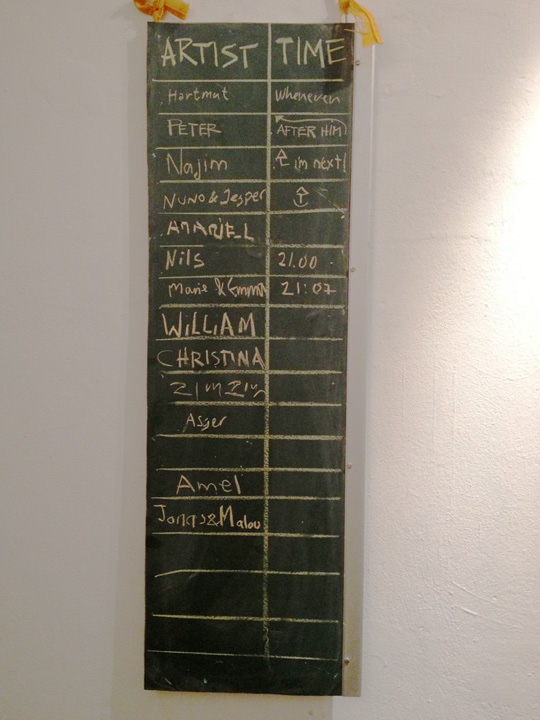 ARTIST TIME
Hartmut Whenever
PETER AFTER HIM
Najim im next!
Nuno & Jesper
AMARIEL
Nils 21.00
Marie & Emma 21:07
WiLLIAM
CHRISTINA
ZimZim
Asger
Amel
Jonas & Malou